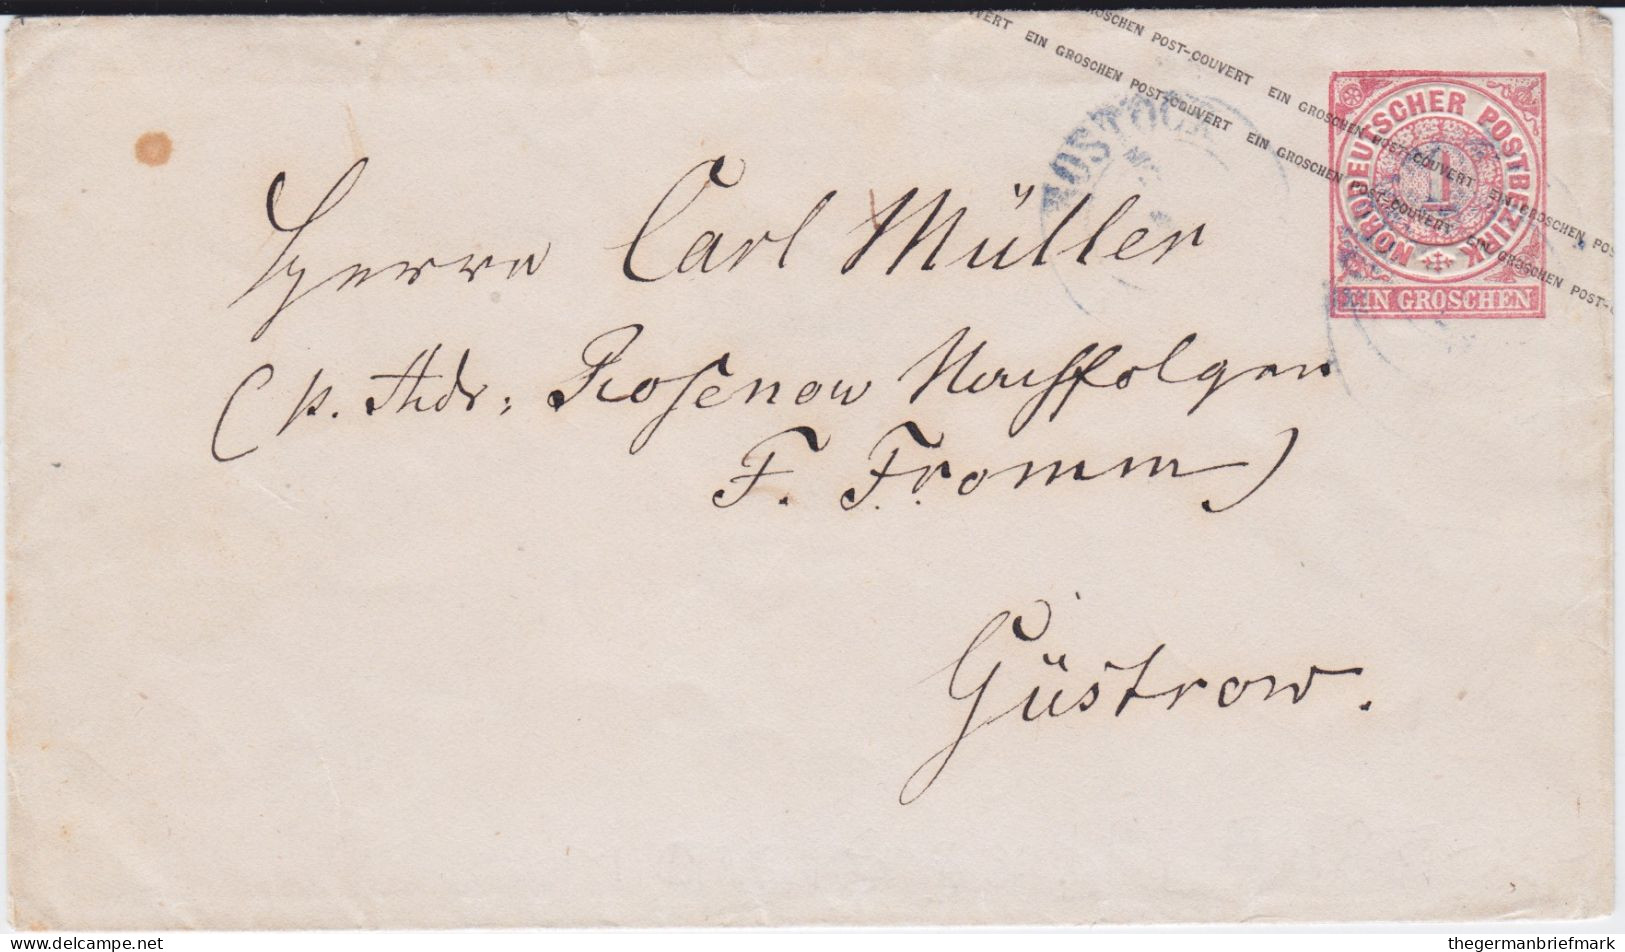 SCHEN POST-COUVERT EIN GROSCHEN POST-COUVERT EIN GROSCHEN POS
VERT EIN GROSCHEN POST-COUVERT EIN GROSCHEN POST-COUVERT EIN GROSCHEN POST-C
OSTOCK
NORDDEUTSCHER POSTBEZIRK
1
EIN GROSCHEN
Herrn Carl Müller
(p. Adr: Rosenow Nachfolger
F. Fromm)
Güstrow.
delcampe.net
thegermanbriefmark